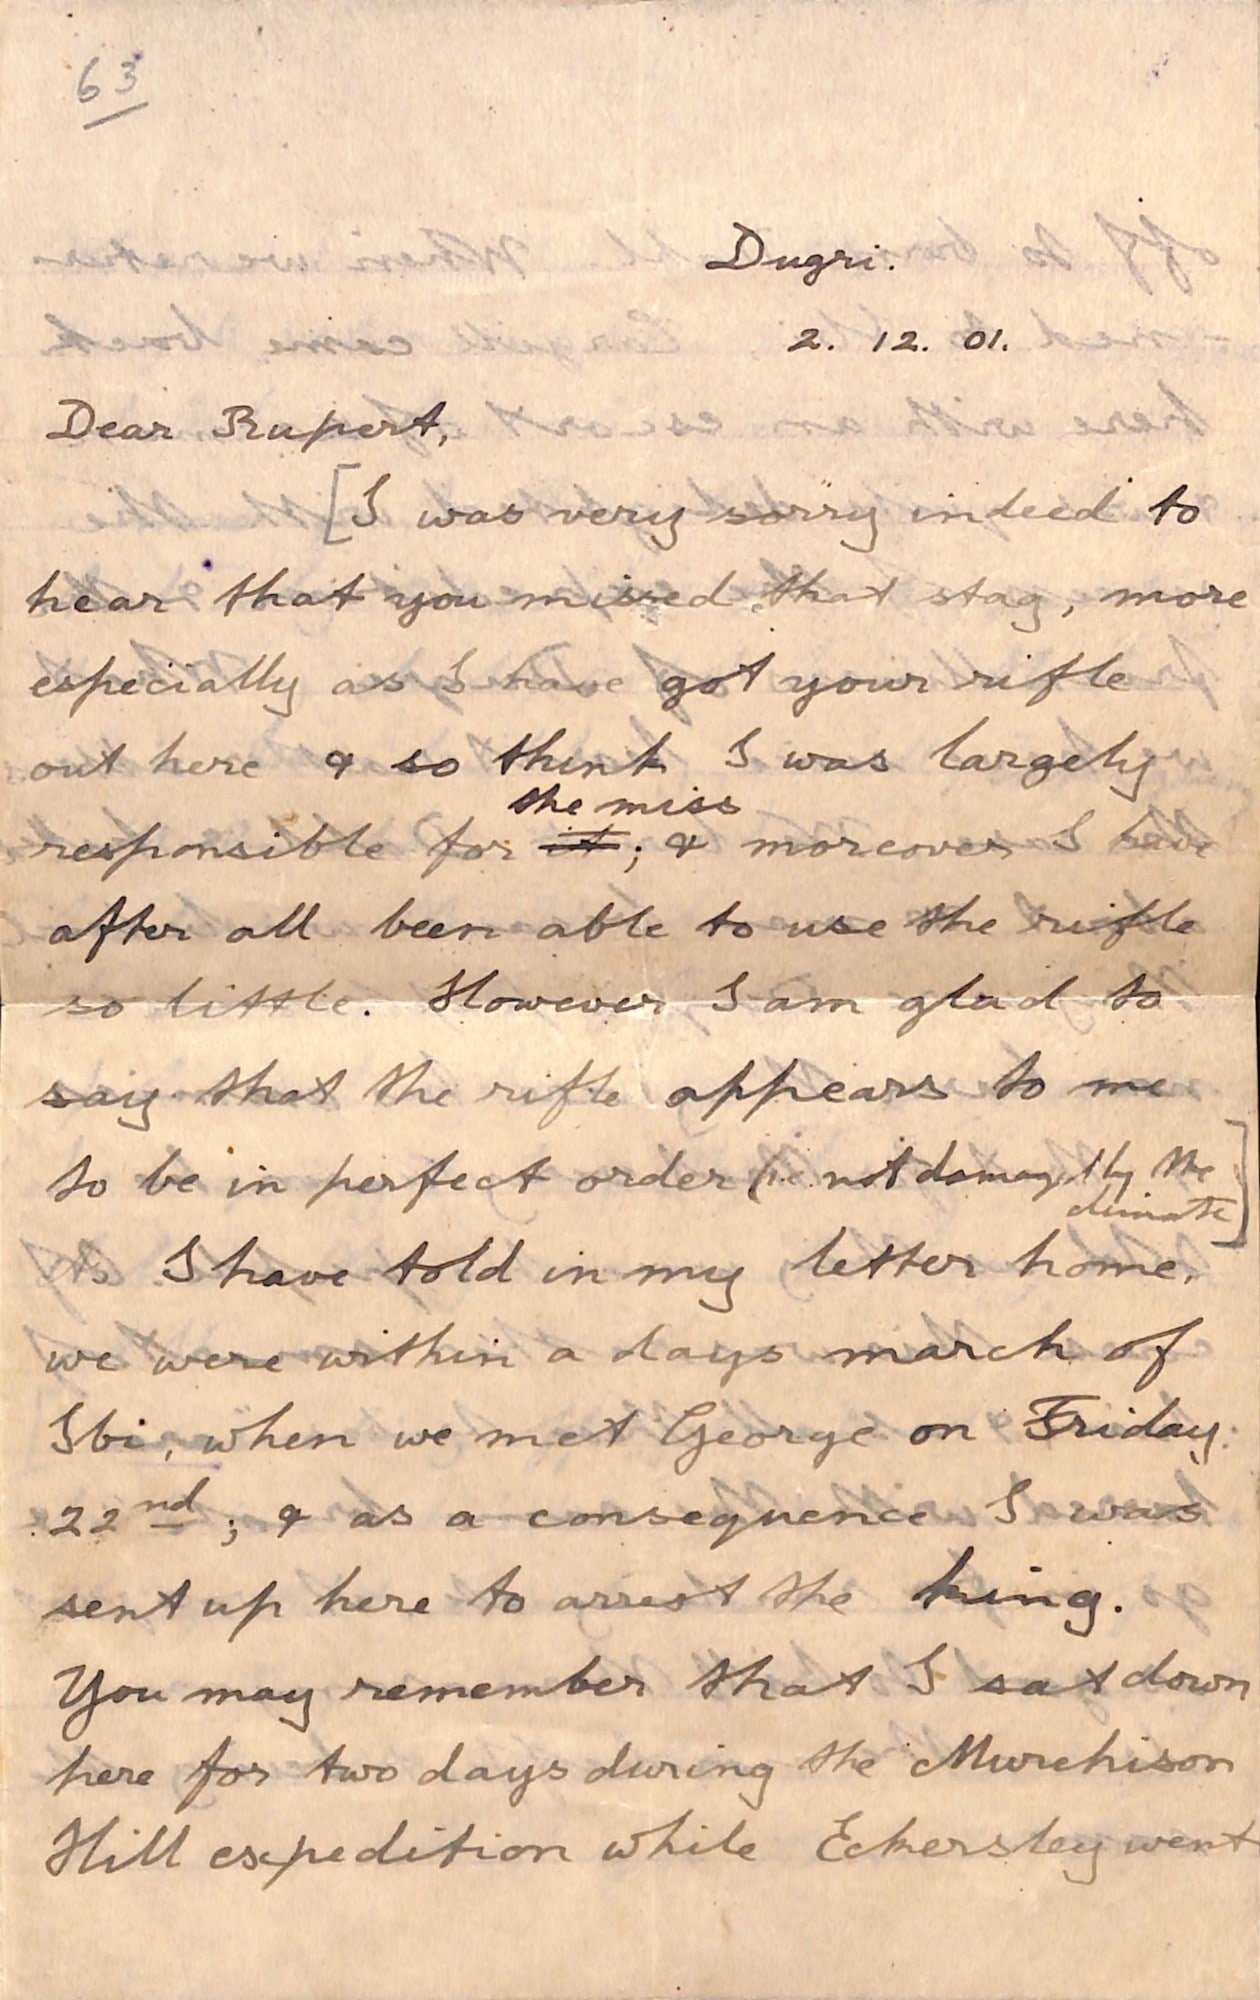 63
Dugri.
2. 12. 01.
Dear Rupert,
[I was very sorry indeed to
hear that you missed that stag, more
especially as I have got your rifle
out here & so think I was largely
the miss
responsible for it; & moreover I have
after all been able to use the rifle
so little. However I am glad to
say that the rifle appears to me
to be in perfect order (i.e. not damaged by the
climate]
As I have told in my letter home,
we were within a days march of
Ibi, when we met George on Friday
22nd; & as a consequence I was
sent up here to arrest the king.
You may remember that I sat down
here for two days during the Murchison
Hill expedition while Eckersley went